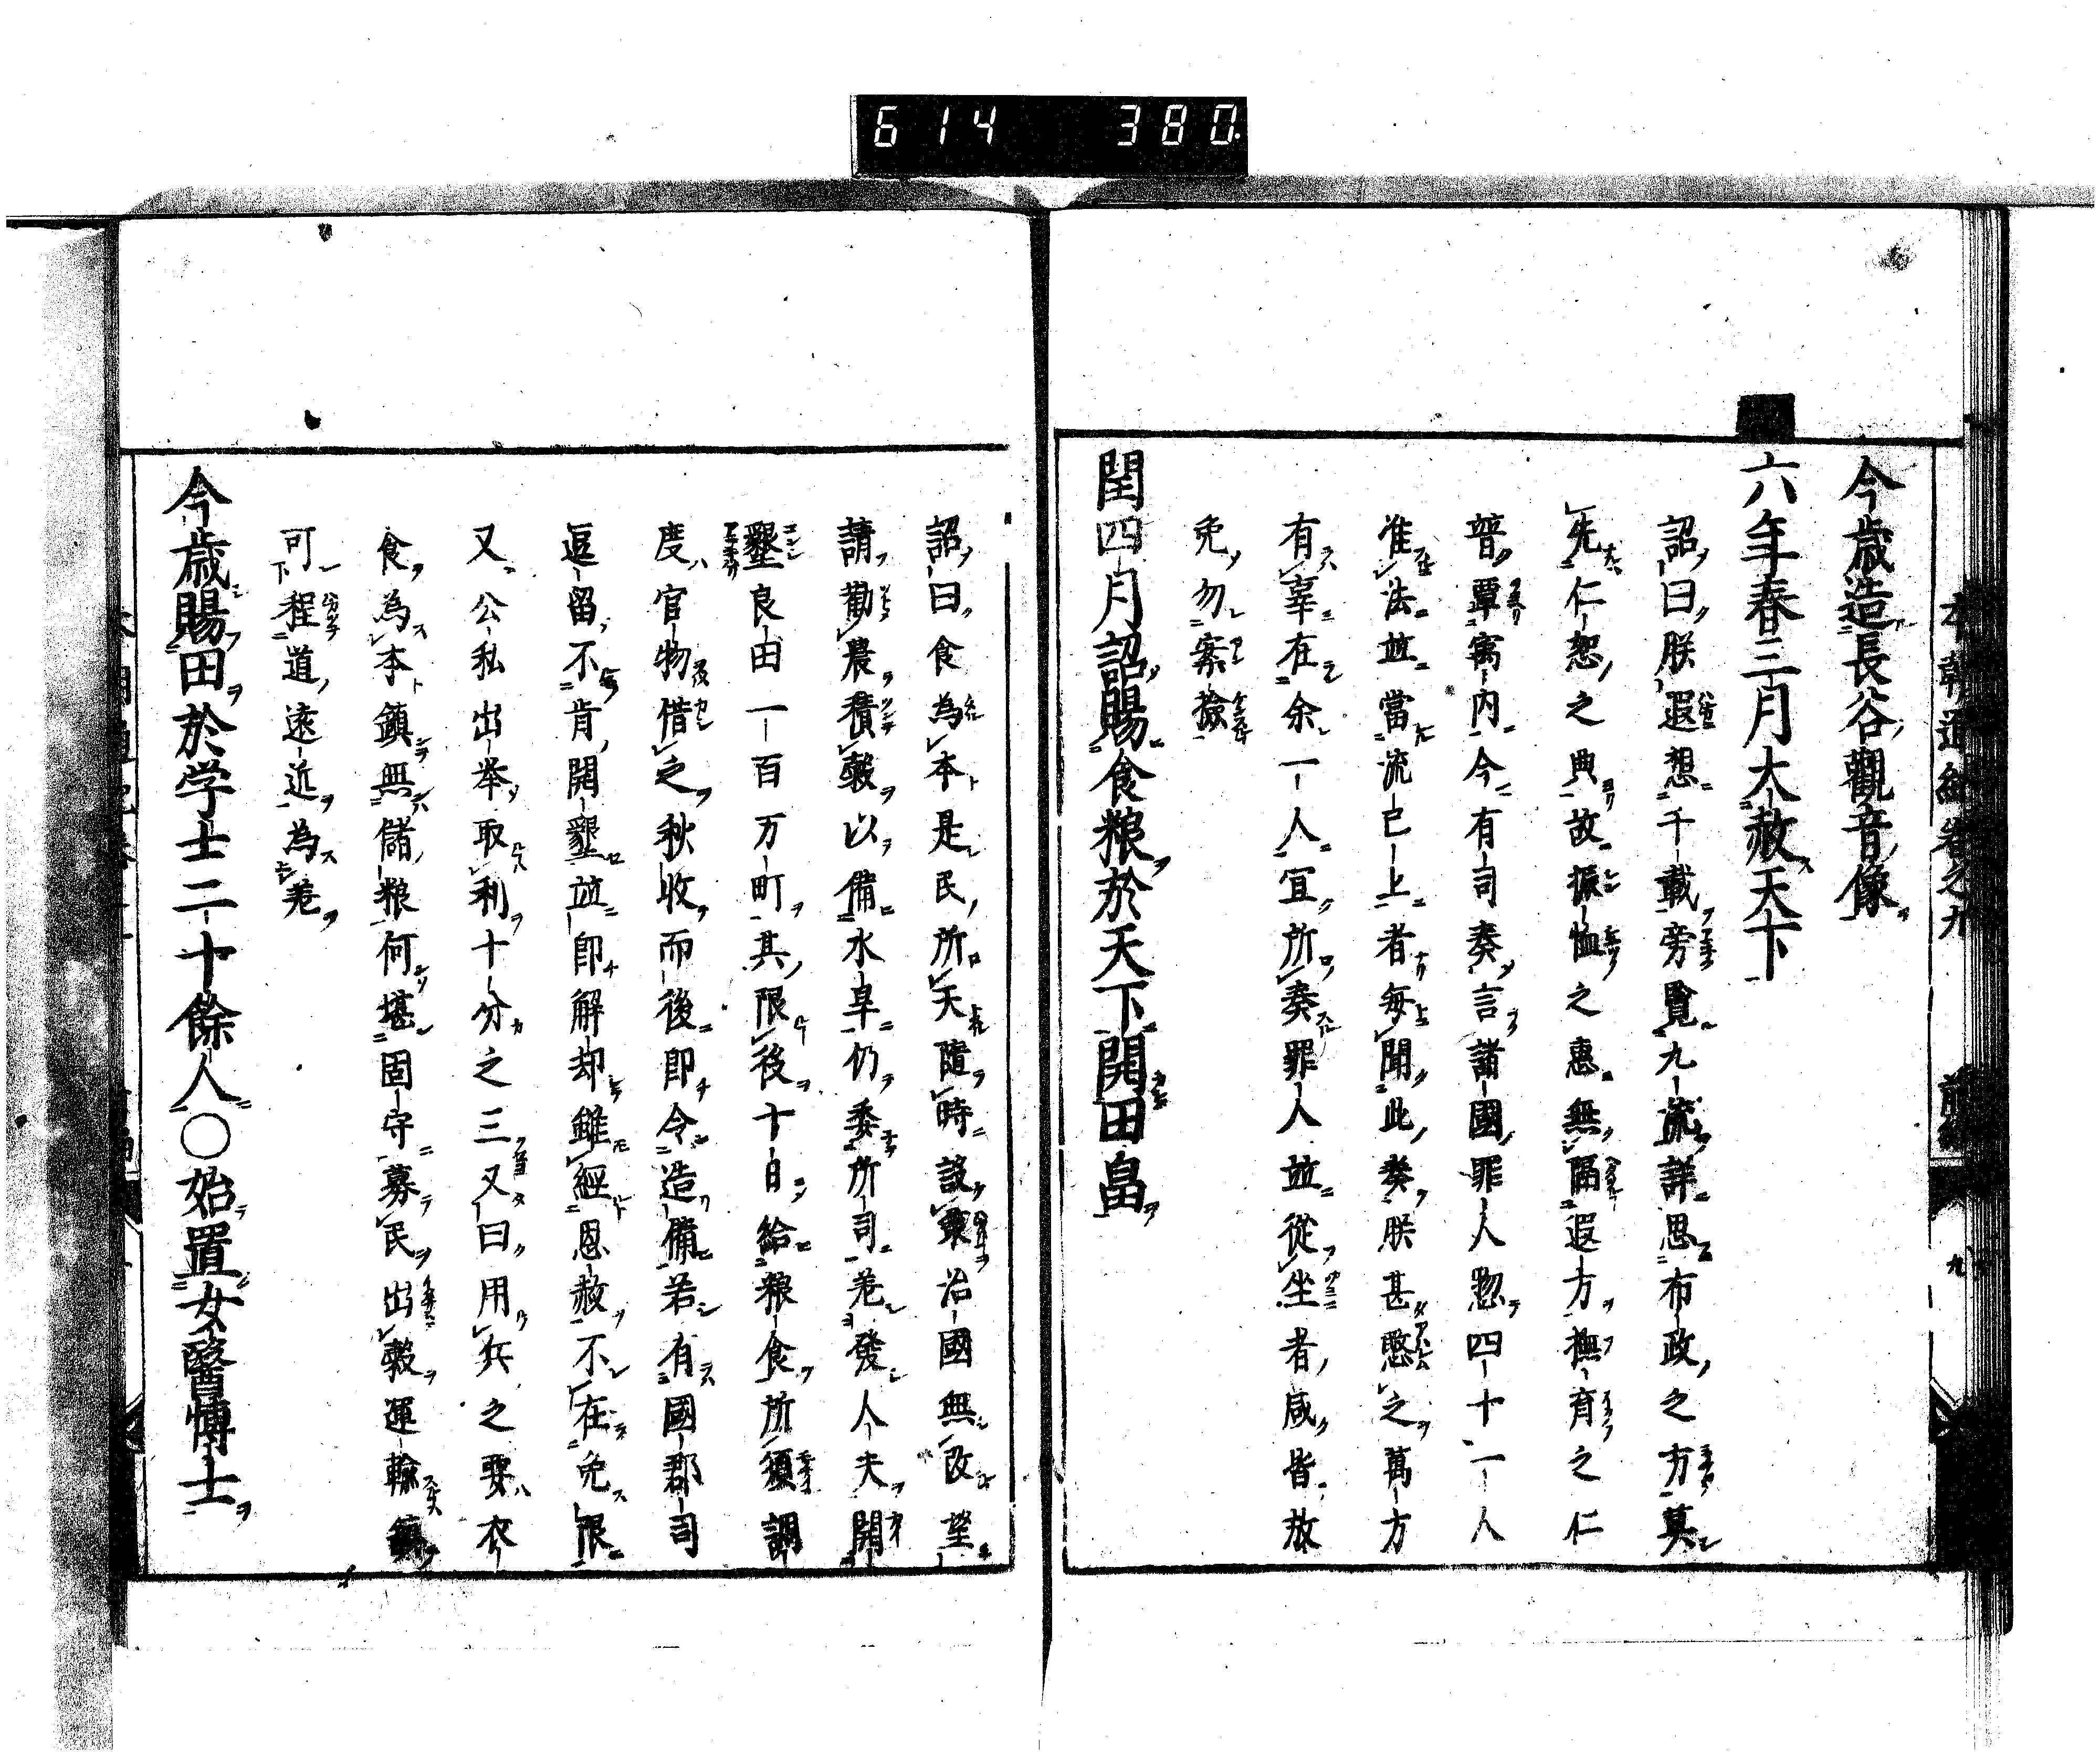 614 380
本朝通紀卷之九 前編 九
今歳造長谷觀音像
六年春三月大赦天下
詔曰朕遐想千載旁覧九流詳思布政之方莫
先仁恕之典故振恤之惠無隔遐方撫育之仁
普覃寓内今有司奏言諸國罪人惣四十一人
准法並當流已上者毎聞此奏朕甚愍之萬方
有辜在余一人宜所奏罪人並從坐者咸皆放
免勿案撿
閏四月詔賜食粮於天下開田畠
詔曰食為本是民所天隨時設策治國無改望
請勸農積穀以備水旱仍委所司差發人夫開
墾良田一百万町其限役十日給粮食所須調
度官物借之秋收而後即令造備若有國郡司
逗留不肯開墾並即解却雖經恩赦不在免限
又公私出举取利十分之三又曰用兵之要衣
食為本鎮無儲粮何堪固守募民出穀運輸鎮
可程道遠近為差
今歳賜田於学士二十餘人○始置女醫博士